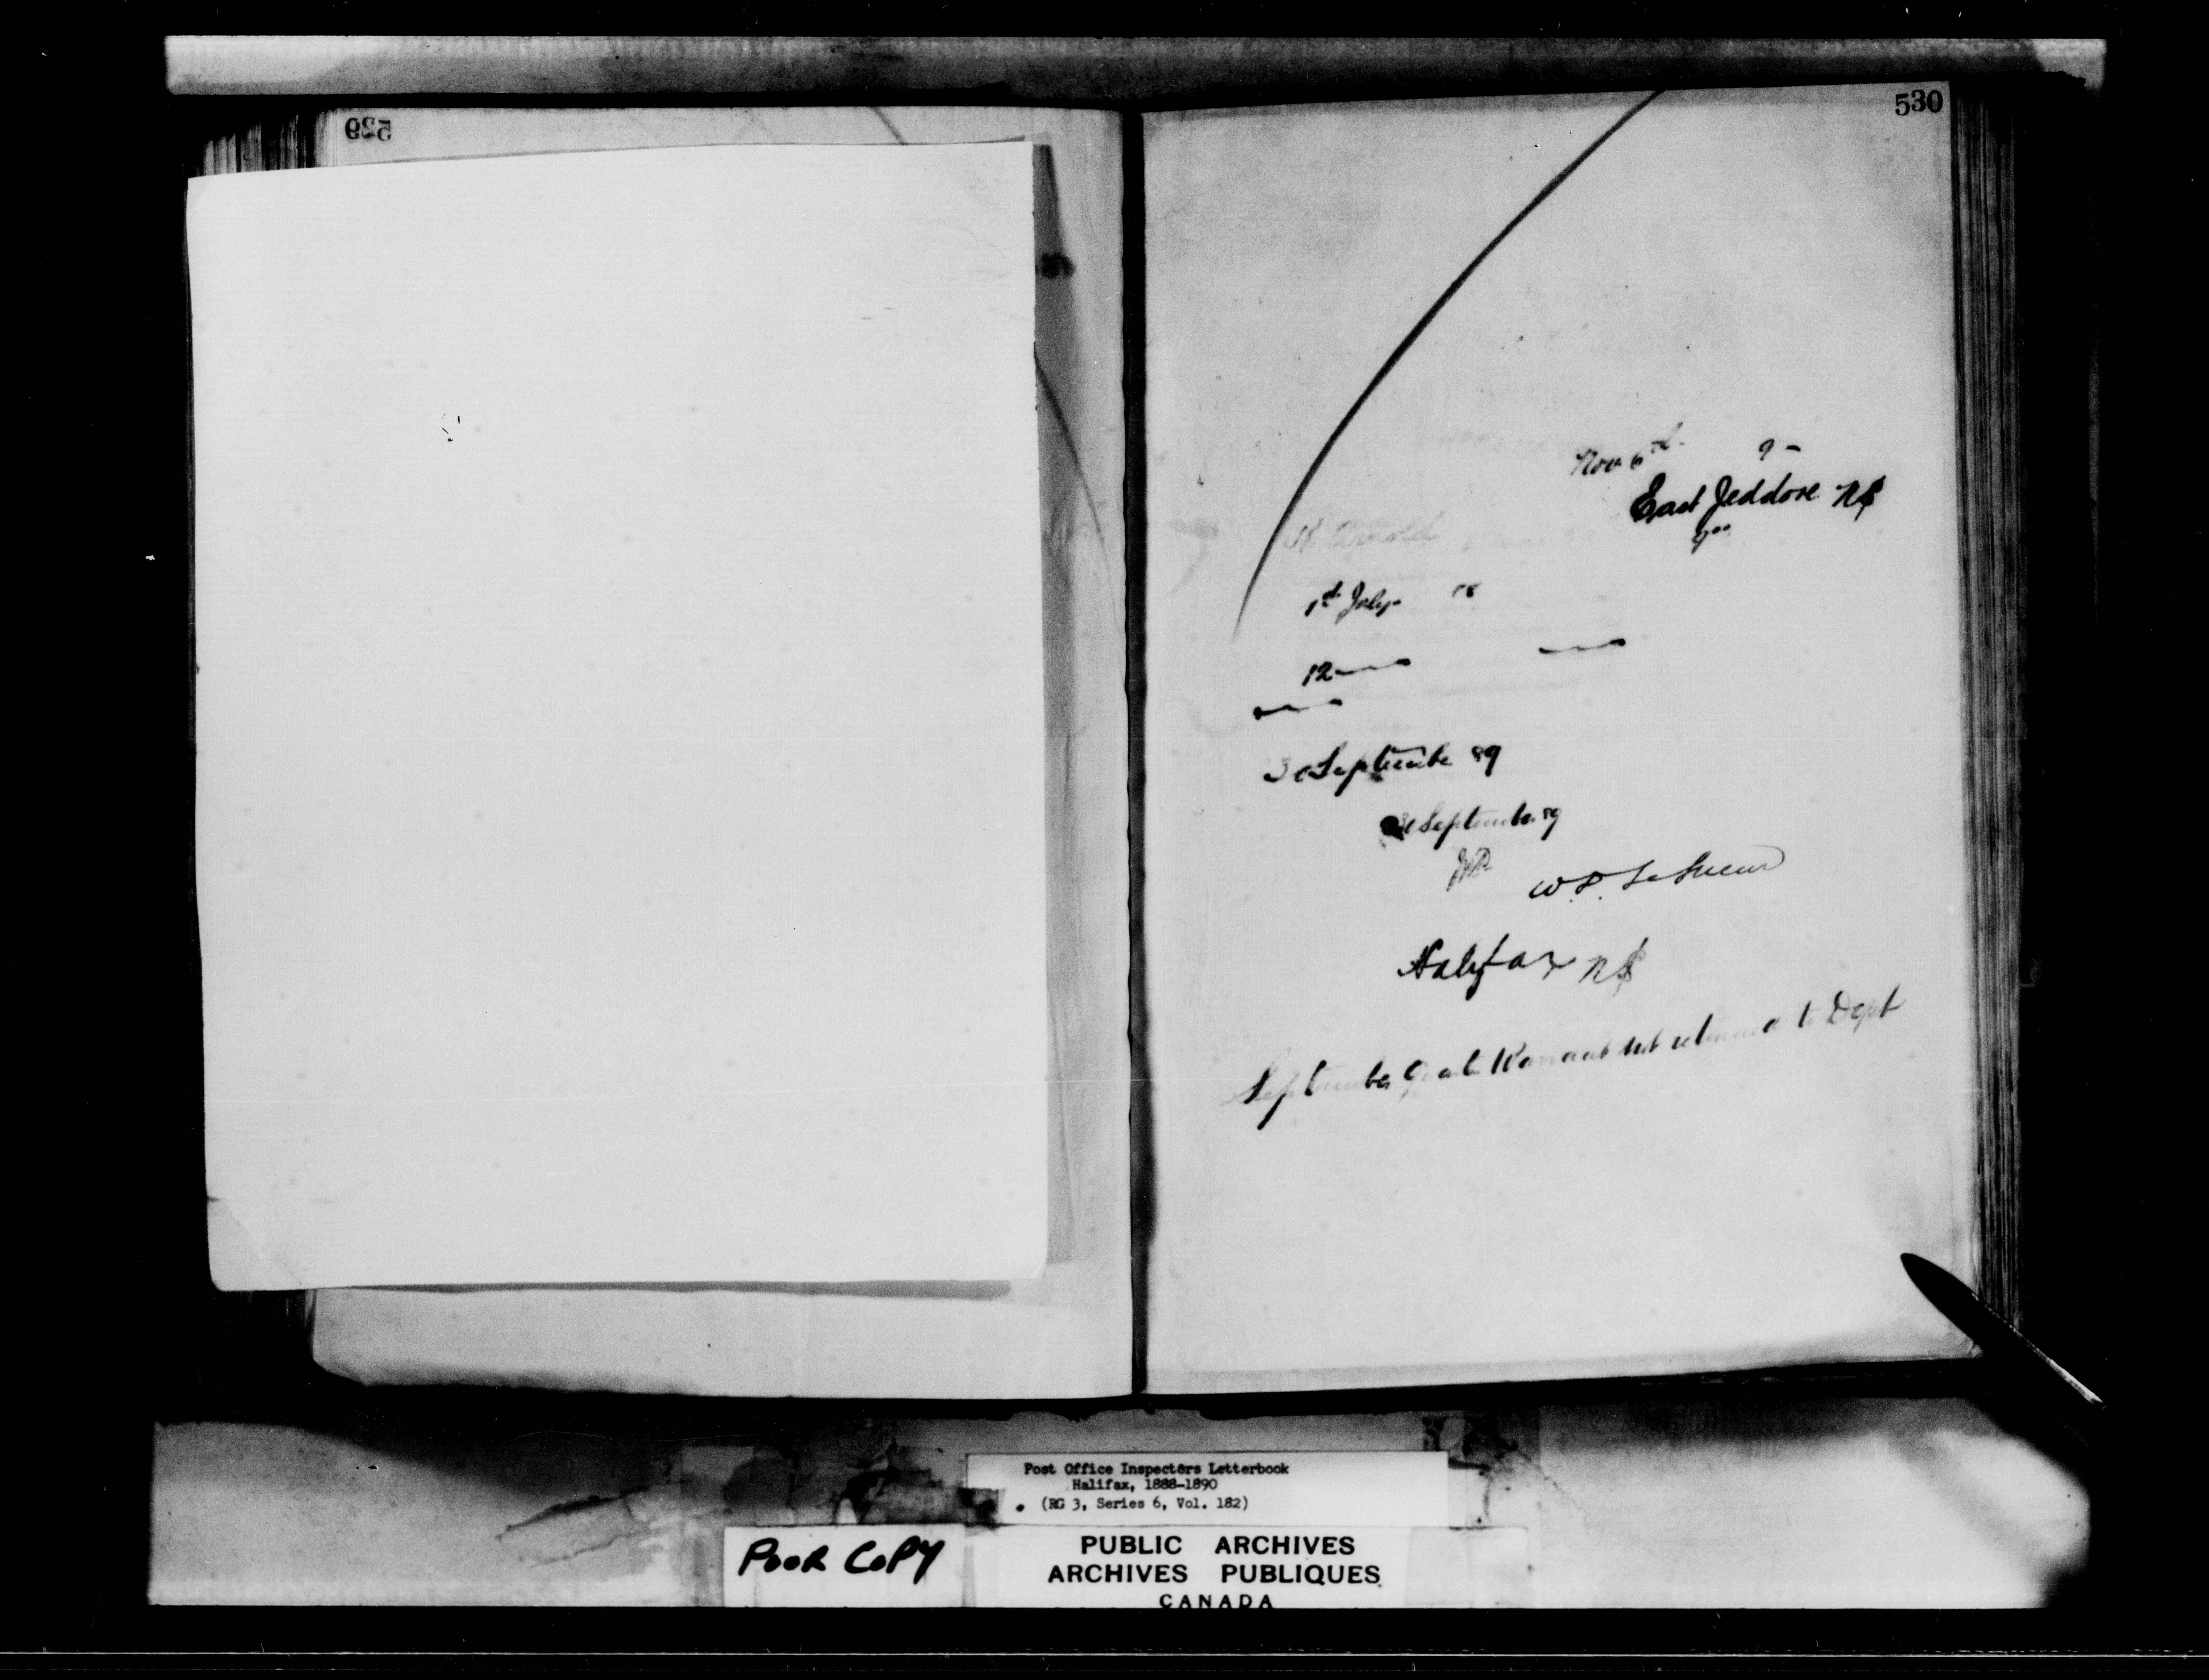 529
530
Nov 6th 9 -
East Jeddore NS
Arnold
1st July 88
12
30 September 89
30 September 89
W.D. LeSueur
Halifax NS
September Quarter Warrant not returned to Dept
Post Office Inspectors Letterbook
Halifax, 1888-1890
(RG 3, Series 6, Vol. 182)
POOR COPY
PUBLIC ARCHIVES
ARCHIVES PUBLIQUES
CANADA